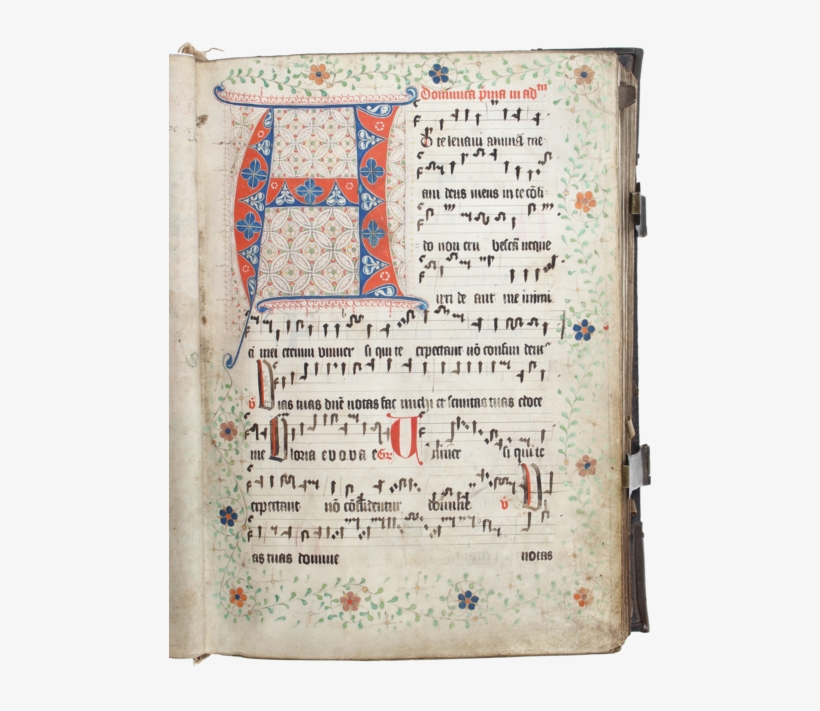 Dominica prima in adtm
D te levavi animā me
am deus meus in te cōfi
do non eru bescā neque
irri de ant me inimi
ci mei etenim univer si qui te expectant nō confun dent
V Vias tuas dn̄e notas fac michi et semitas tuas edoce
me Gloria e v o v a e Gr Univer si qui te
expectant nō cōfundentur domine V V
as tuas domine notas